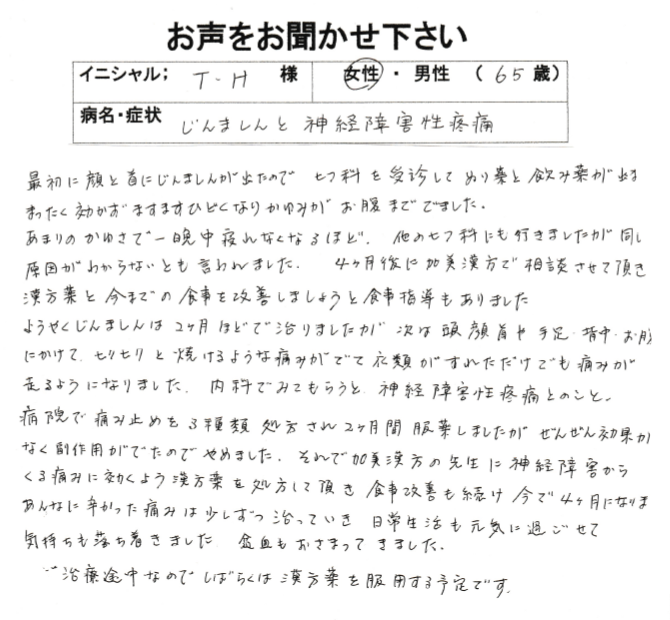 お声をお聞かせ下さい
イニシャル； T・H 様 女性 ・ 男性 （ 65 歳）
病名・症状 じんましんと神経障害性疼痛
最初に顔と首にじんましんが出たので ヒフ科を受診してぬり薬と飲み薬が出
まったく効かずますますひどくなりかゆみが お腹まででました。
あまりのかゆさで一晩中寝れなくなるほど、他のヒフ科にも行きましたが同じ
原因がわからないとも言われました。 4ヶ月後に加美漢方で相談させて頂き
漢方薬と今までの食事を改善しましょうと食事指導もありました
ようやくじんましんは2ヶ月ほどで治りましたが 次は頭顔首や手足・背中・お腹
にかけて、ヒリヒリと焼けるような痛みがでて衣類がすれただけでも痛みが
走るようになりました、 内科でみてもらうと、神経障害性疼痛とのこと。
病院で痛み止めを3種類処方され2ヶ月間服薬しましたがぜんぜん効果が
なく副作用がでたのでやめました。それで加美漢方の先生に神経障害から
くる痛みに効くよう漢方薬を処方して頂き 食事改善も続け今で4ヶ月になりま
あんなに辛かった痛みは少しずつ治っていき 日常生活も元気に過ごせて
気持ちも落ち着きました 血もおさまってきました。
治療途中なのでしばらくは漢方薬を服用する予定です。